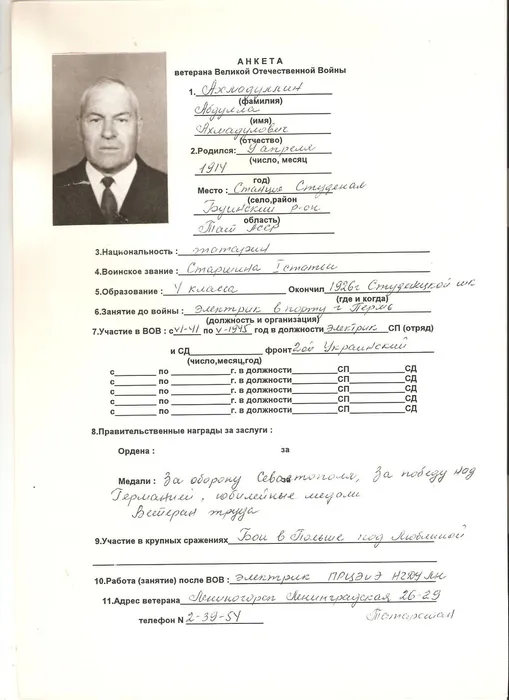 АНКЕТА
ветерана Великой Отечественной Войны
1. Ахмадулкин
(фамилия)
Абдулла
(имя)
Ахмадулович
(отчество)
2.Родился: 4 апреля
(число, месяц
1914
год)
Место : Станция Студенал
(село,район
Буинский р-он
область)
Тат АССР
3.Национальность : татарин
4.Воинское звание : Старшина I статьи
5.Образование : 4 класса Окончил 1926г Студенецкой шк
(где и когда)
6.Занятие до войны : Электрик в порту г Пермь
(должность и организация)
7.Участие в ВОВ : с VI-41 по V-1945 год в должности электрик СП (отряд)
и СД фронт 2ой Украинский
(число,месяц,год)
с по г. в должности СП СД
с по г. в должности СП СД
с по г. в должности СП СД
с по г. в должности СП СД
с по г. в должности СП СД
8.Правительственные награды за заслуги :
Ордена : за
Медали : За оборону Севастополя, За победу над
Германией, юбилейные медали
Ветеран труда
9.Участие в крупных сражениях Бои в Польше под Люблиной
10.Работа (занятие) после ВОВ : электрик ПРЦЭиЭ НГДУ ЛН
11.Адрес ветерана Лениногорск Ленинградская 26-29
телефон N 2-39-54 Татарстан